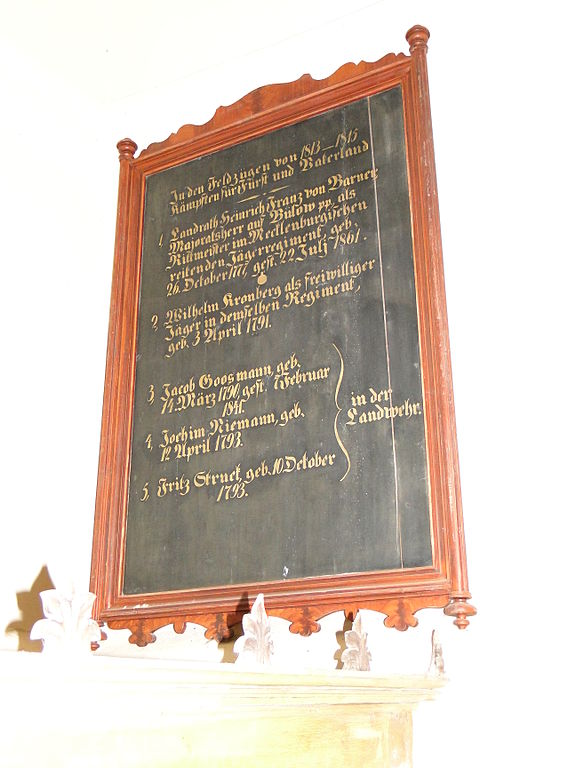 In den Feldzügen von 1813–1815
Kämpften für Fürst und Vaterland
1, Landrath Heinrich Franz von Barner,
Majoratsherr auf Bülow pp. als
Rittmeister im Mecklenburgischen
reitenden Jägerregiment, geb.
26. October 1777, gest. 22 July 1861.
2, Wilhelm Kronberg als freiwilliger
Jäger in demselben Regiment,
geb. 3 April 1791.
3, Jacob Goosmann, geb.
14. März 1790, gest. 7 Februar
1841.
4, Jochim Niemann, geb.
12 April 1793.
5, Fritz Struck, geb. 10 October
1793.
in der
Landwehr.